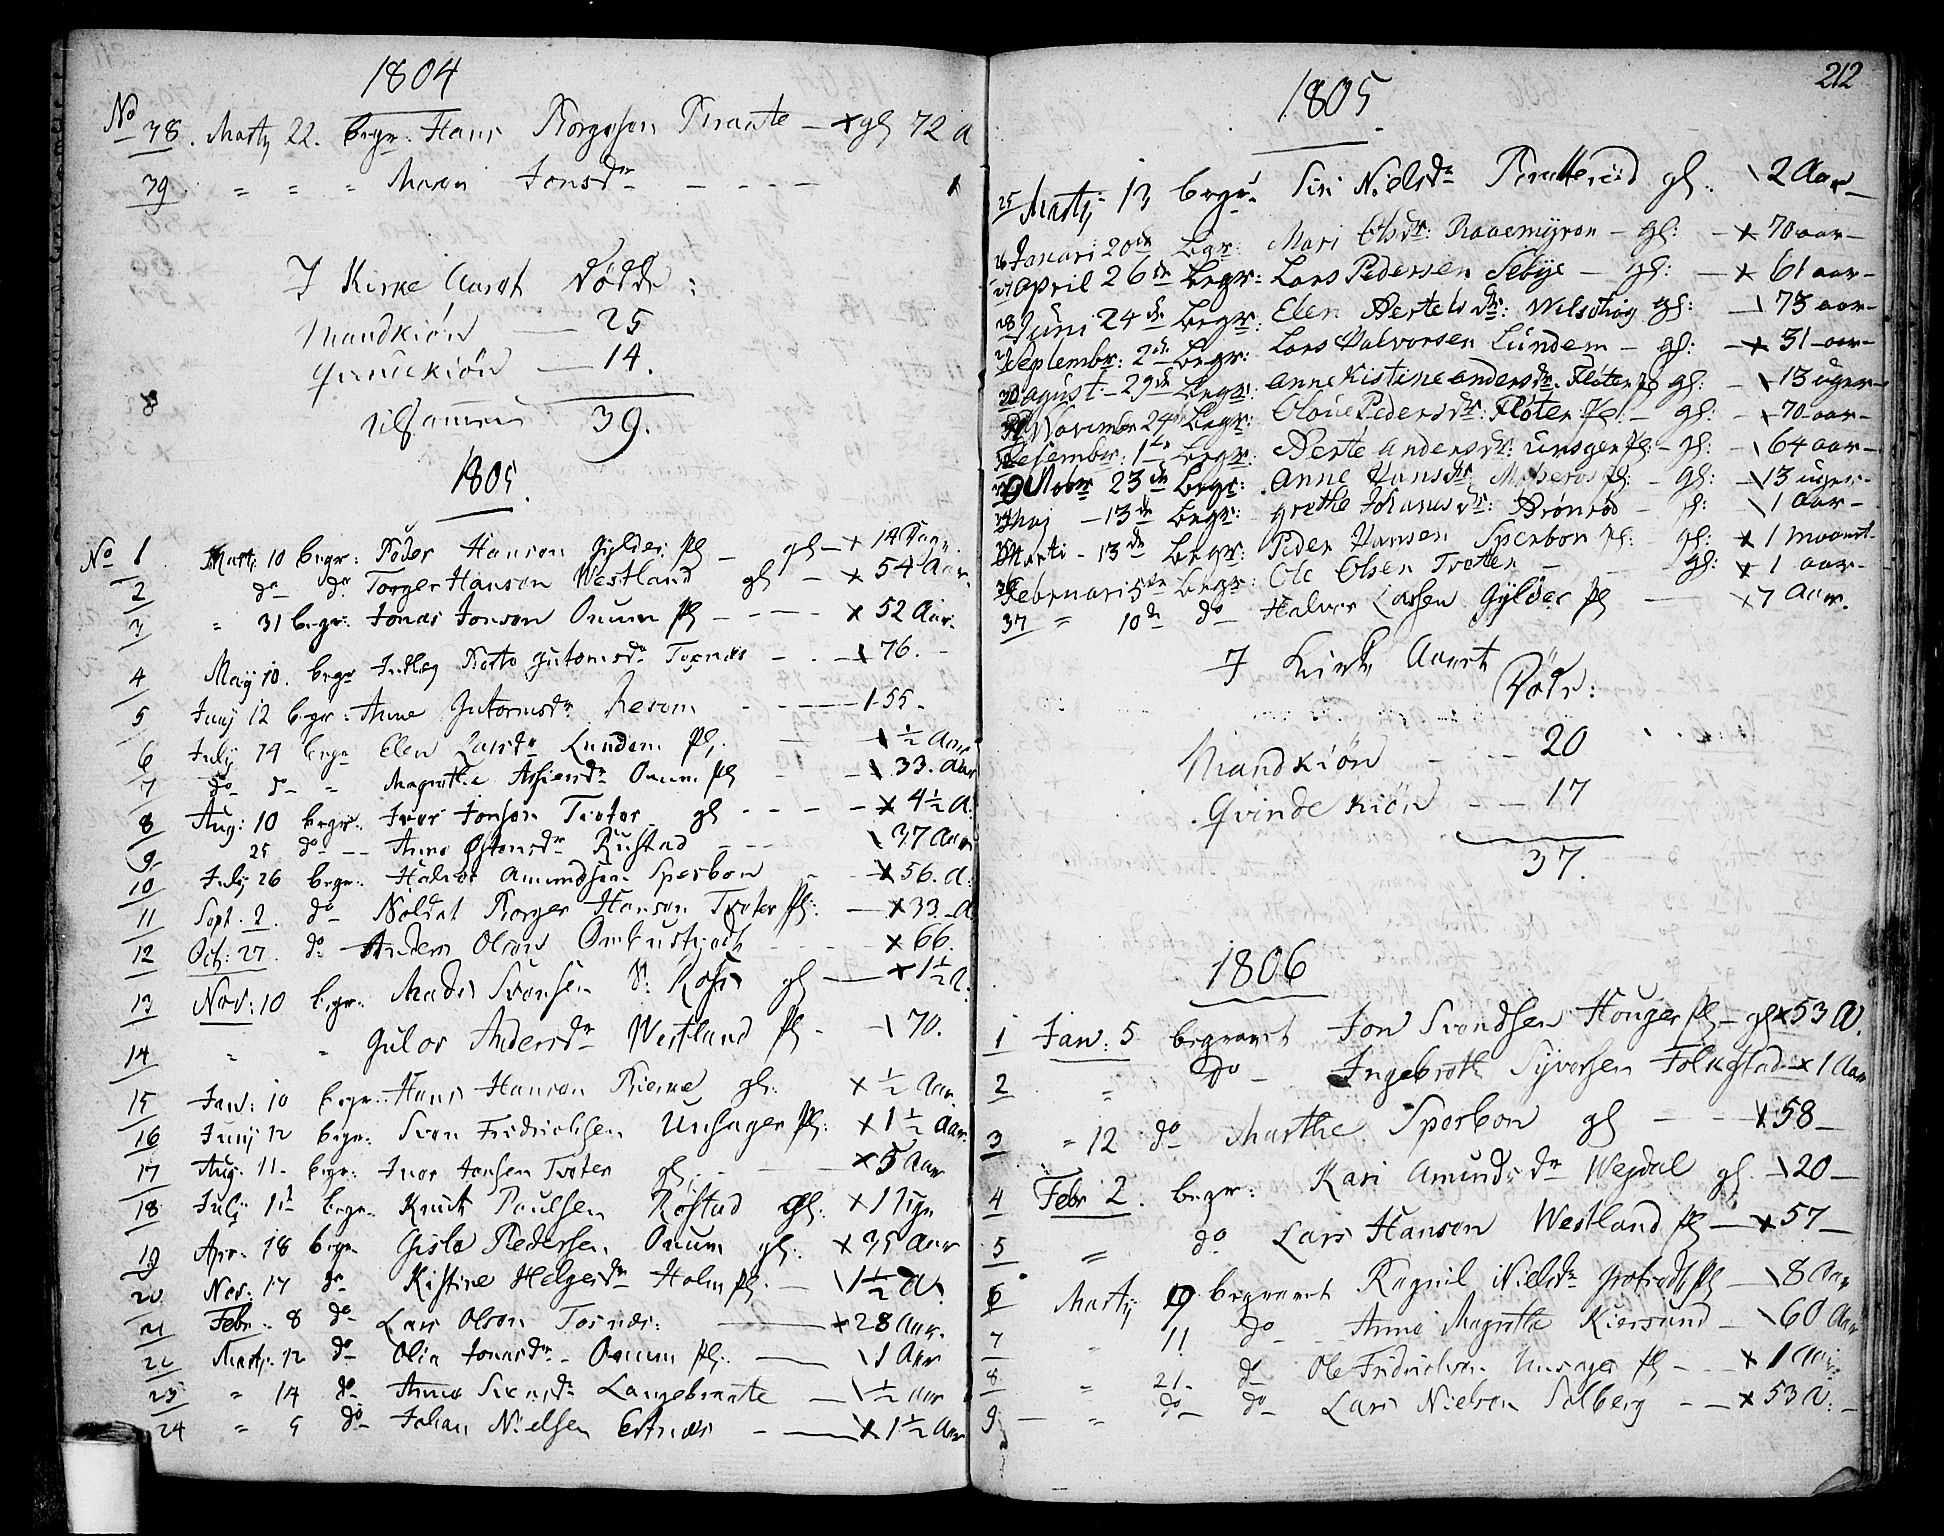 1804
No
38. Martz 22. begr. Hans Borgesen Braate — x gl 72 a
39 " " " Maren Jonsdr — - - - —
I Kirke Aaret Dödde:
Mandkiön — 25
Qvindekiön — 14.
tilsammen 39.
1805.
No 1 Martz 10 begr: Peder Hanson Gylder. Pl — gl — x 14 Dage.
2 do do Torger Hanson Westland gl — x 54 Aar.
3 " 31 begr: Jonas Jonson Onum Pl — - — - x 52 Aar.
4 May 10. begr Gutormsdr Toxnæs — . — \ 76. -
5 Juny 12 begr: Anne Gutormsdr — - — \ 55.
6 July 14 begr Elen Larsdr Lunden Pl. — \ ½ Aar
7 do d— " Magrethe Onum Pl - - \ 33. Aar
8 Aug: 10 begr: Iver Jonson Tveter gl - - — - x 4½ A.
9 25 do — Anne Östensdr Rustad - - - \ 37 Aar
10 July 26 begr: Halvor Amundsen Sperbon - - x 56. A.
11 Sept. 2. do — Soldat Borger Hanson Tveter Pl: — x 33. A
12 Oct: 27. do Anders Olson - - x 66.
13 Nov: 10 begr: Mads Svensen gl — x 1½ A.
14 " " Gulor Andersdr Westland Pl - \ 70.
15 Jan: 10 begr: Hans Hanson gl: x ½ Aar.
16 Juny 12 begr: Sven Fridrichsen Unsager Pl: x 1½ Aar.
17 Aug. 11 — begr: Iver Jonsen Tveter gl. - — x 5 Aar
18 July 1st begr. Knut Paulsen Röstad gl: x 1 Uge
19 Apr. 18 begr Gisle Pedersen Onum gl: x 35 Aar
20 Nov: 17 do Kistine Helgesdr Holm Pl. — \ 1½ A.
21 Febr: 8 do Lars Olson Toxnæs: — x 28 Aar.
22 Martz. 12 do Olia Jonasdr — Onum Pl: — \ 1 Aar
23 " 14 do Anne Svensdr Langebraate — \ ½ aar
24 " 5 do Johan Nielsen Ertnæs - — x 1½ Aar
212
1805.
25 Martz 13 begr: Siri Nielsdr gl. \ 2 Aar —
26 Januari 20de begr: Mari Olsdr: Raaemyren — gl: — x 70 aar —
27 April 26de Begr: Lars Pedersen Sebye — gl: — x 61 aar —
28 Juni 24de Begr: Elen Bertelsdr: gl: — \ 73 aar —
29 Septembr: 2de Begr: Lars Halvorsen Lundem — gl: — x 31 — aar —
30 agust — 29de Begr: Anne Kistine andersdr. Fløter Pl gl: — \ 13 uger —
31 November 24de Begr: Oloue Pedersdr: Fløter Pl: — gl: — \ 70 — aar —
32 Desember: 1te begr: Berte andersdr: unsger Pl: — gl: \ 64 aar —
33 Oktober 23de Begr: Anne Hansdr Pl: — gl: — \ 13 uger —
34 Maj — 13de Begr: grethe Johanesdr: Brønrød — gl: \ 1 Aar —
35 Marti — 13de Begr: Peder Hansen Sperbon Pl: — gl: x 1 maanet —
36 Februari 5te Begr: Ole Olsen Tveter — — gl: x 1 aar —
37 " 10de do Halvor Larsen Gylder Pl — x 7 Aar.
I Kirke Aaret
Döde:
Mandkiön — — 20
Qvindekiön — — 17
37.
1806
1 Jan: 5 begravet Jon Svendsen Houger Pl — gl x 53 A.
2 " do — Ingebreth Syversen Folkestad — x 1 Aar
3 " 12 do Marthe Sperbon gl — — x 58 —
4 Febr 2. begr: Kari Amundsdr Wejdal gl. \ 20 —
5 " do Lars Hanson Westland Pl — x 57 —
6 Martij 9 begravet Ragnil Nielsdr Pl — \ 8 Aar
7 " 11 do - Anne Magrethe Kiersund — \ 60 Aar
8 " 21 — do Ole Fridrichsen Unsager Pl — - x 1 Aar
9 — " do — do — Lars Nielsen Solberg — - x 53 A: —